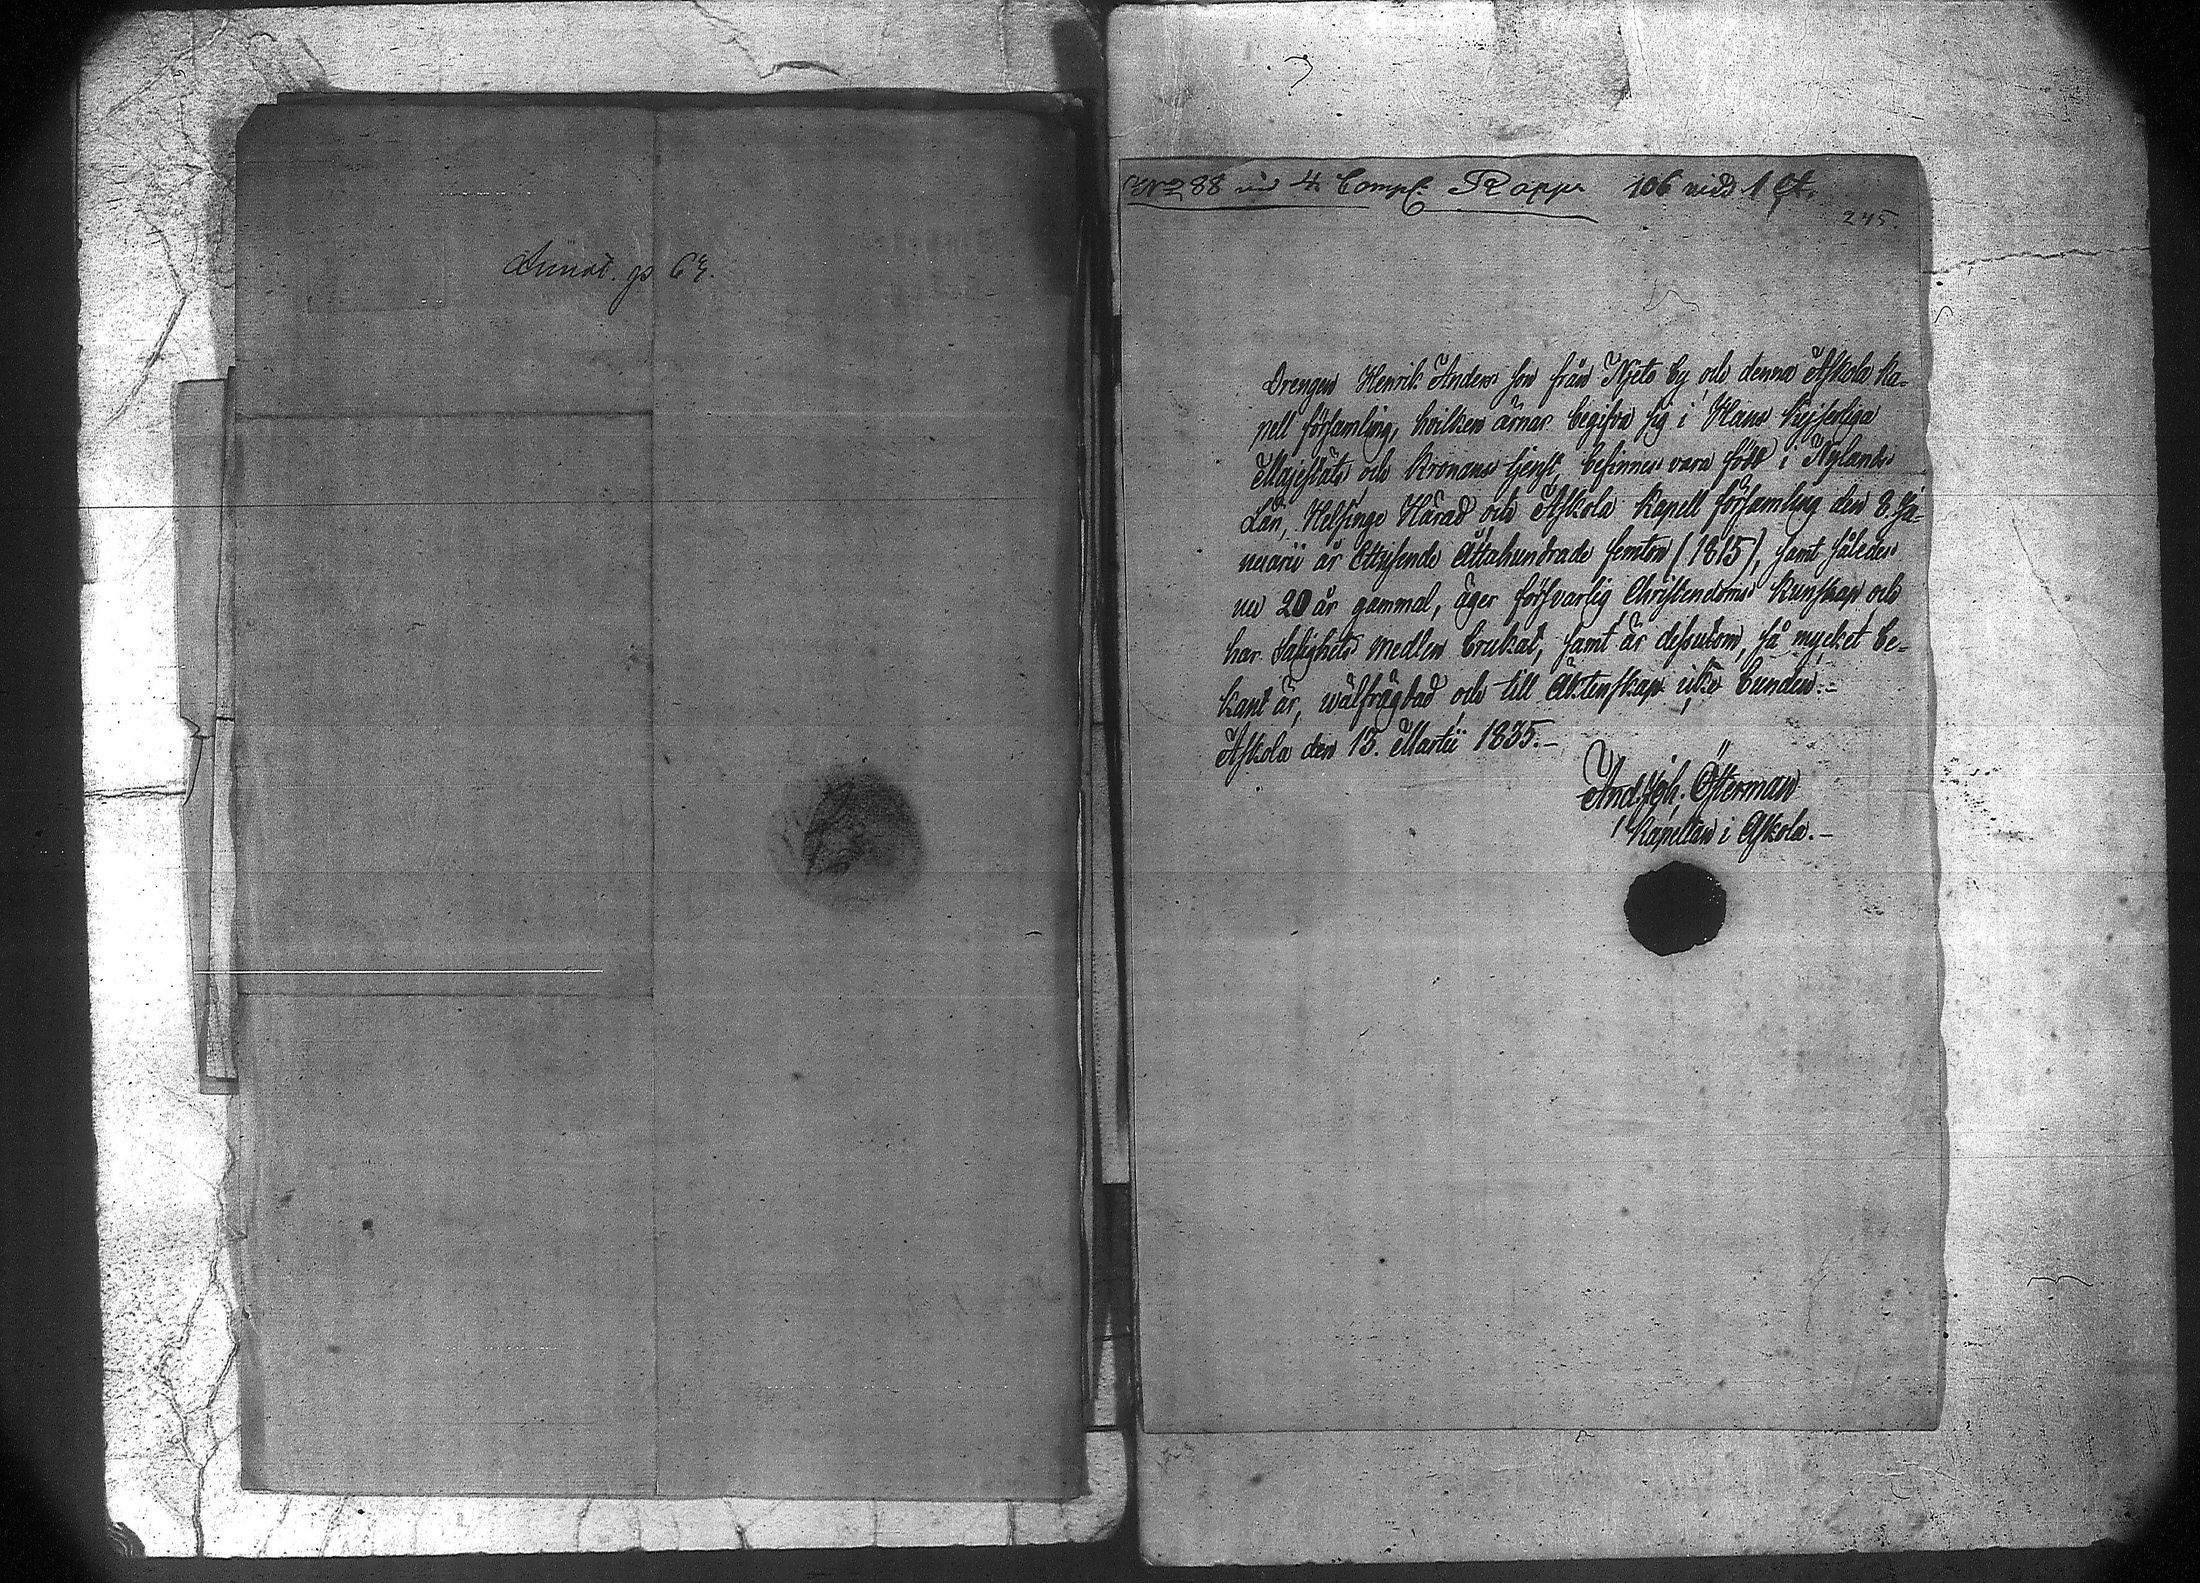 Annot. p 63.
No 288 vid 4. Comp. Rapp. 106 vidd 1 ft.
245.
Drengen Henrik Anders son från Njeto by och denna Askola Ka-
pell församling, hvilken ärnar begifva sig i Hans Kejserliga
Majestäts och Kronans tjenst, befinnes vara född i Nylands
Län, Helsinge Härad och Askola Kapell församling den 8. Ja-
nuarii år Ettusende Åttahundrade femton (1815), samt således
nu 20 år gammal, äger försvarlig Christendoms kunskap och
har salighets medlen brukat, samt är dessutom, så mycket be-
kant är, wälfrägdad och till Äktenskap icke bunden.-
Askola den 15. Martii 1835.-
And. Joh. Österman
Kapellan i Askola.-